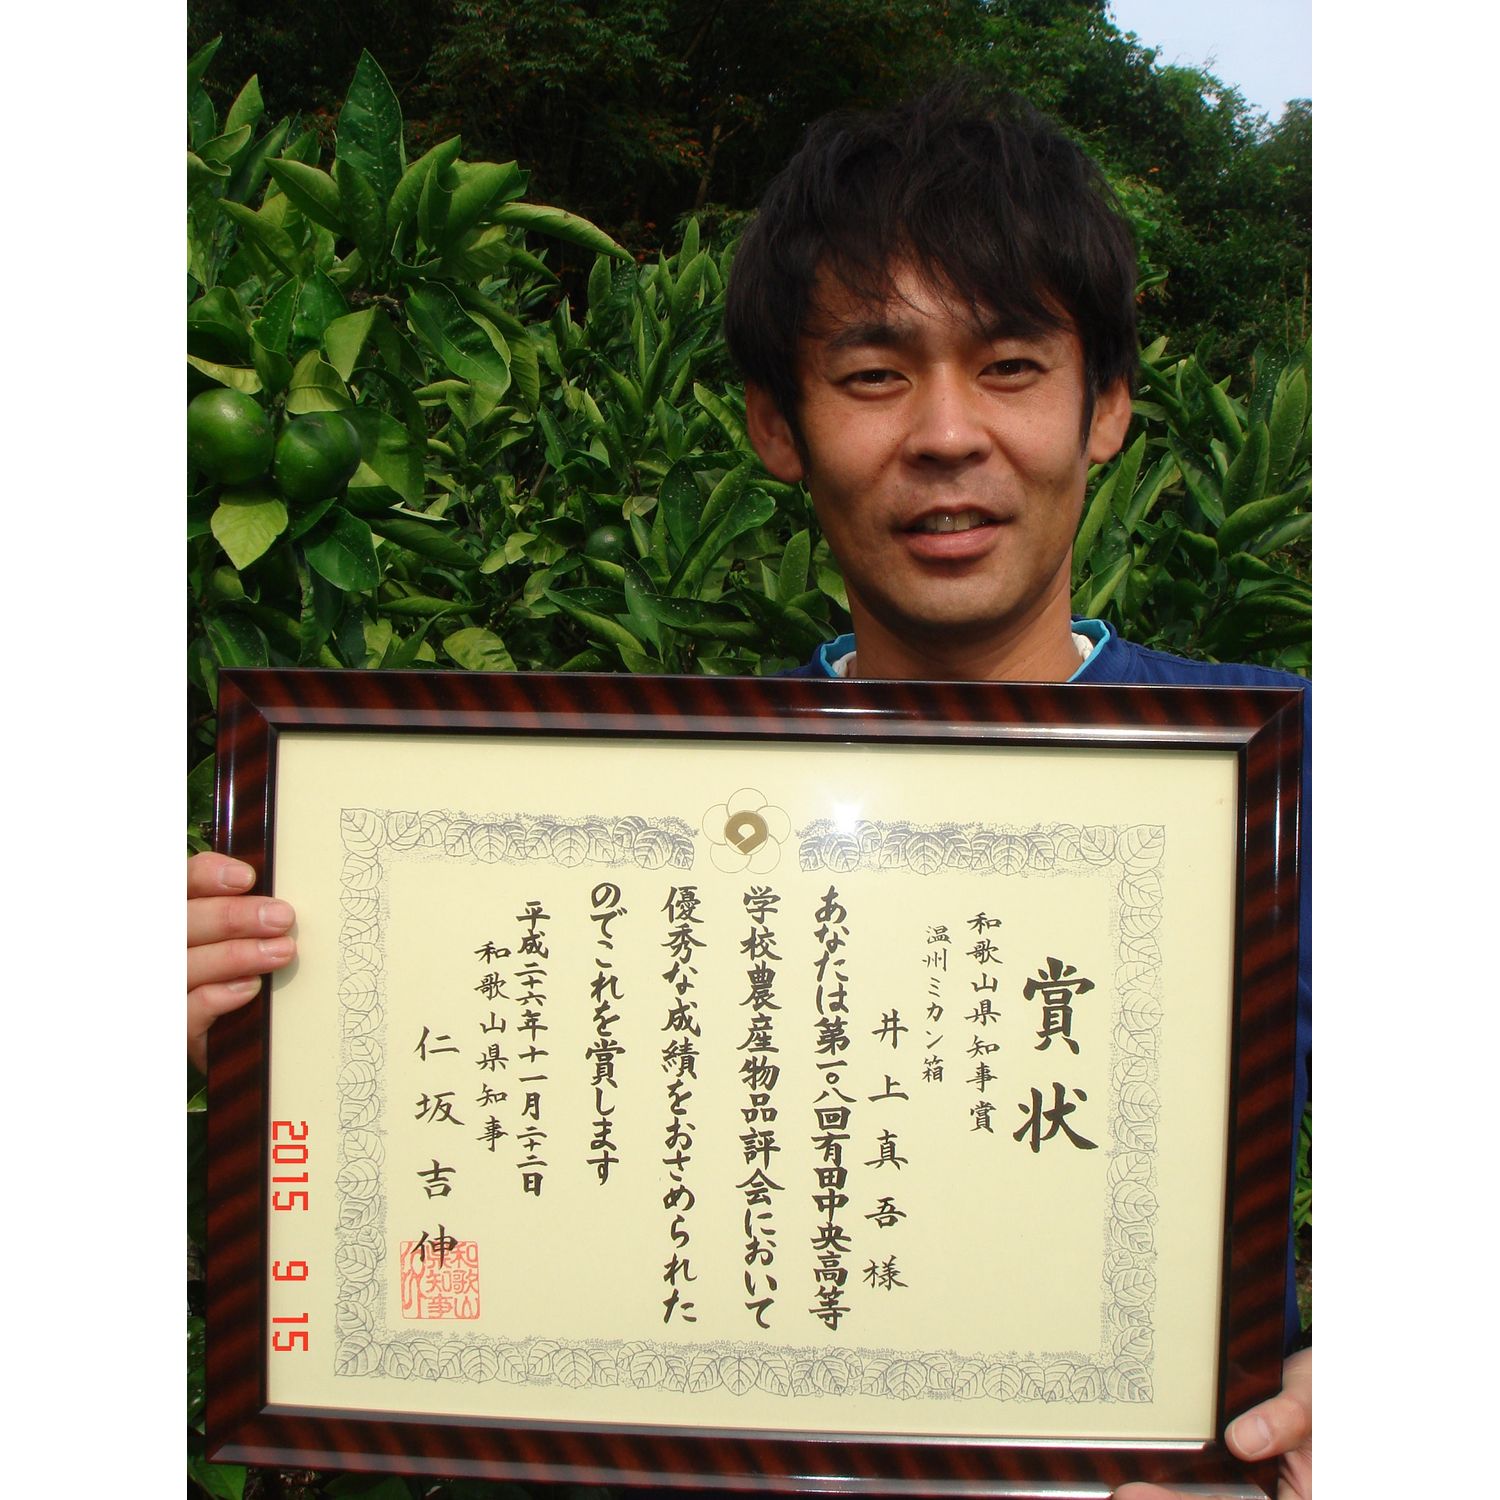 賞状
和歌山県知事賞
温州ミカン箱
井上真吾様
あなたは第一〇八回有田中央高等
学校農産物品評会において
優秀な成績をおさめられた
のでこれを賞します
平成二十六年十一月二十二日
和歌山県知事
仁坂吉伸
和歌山県知事
2015 9 15